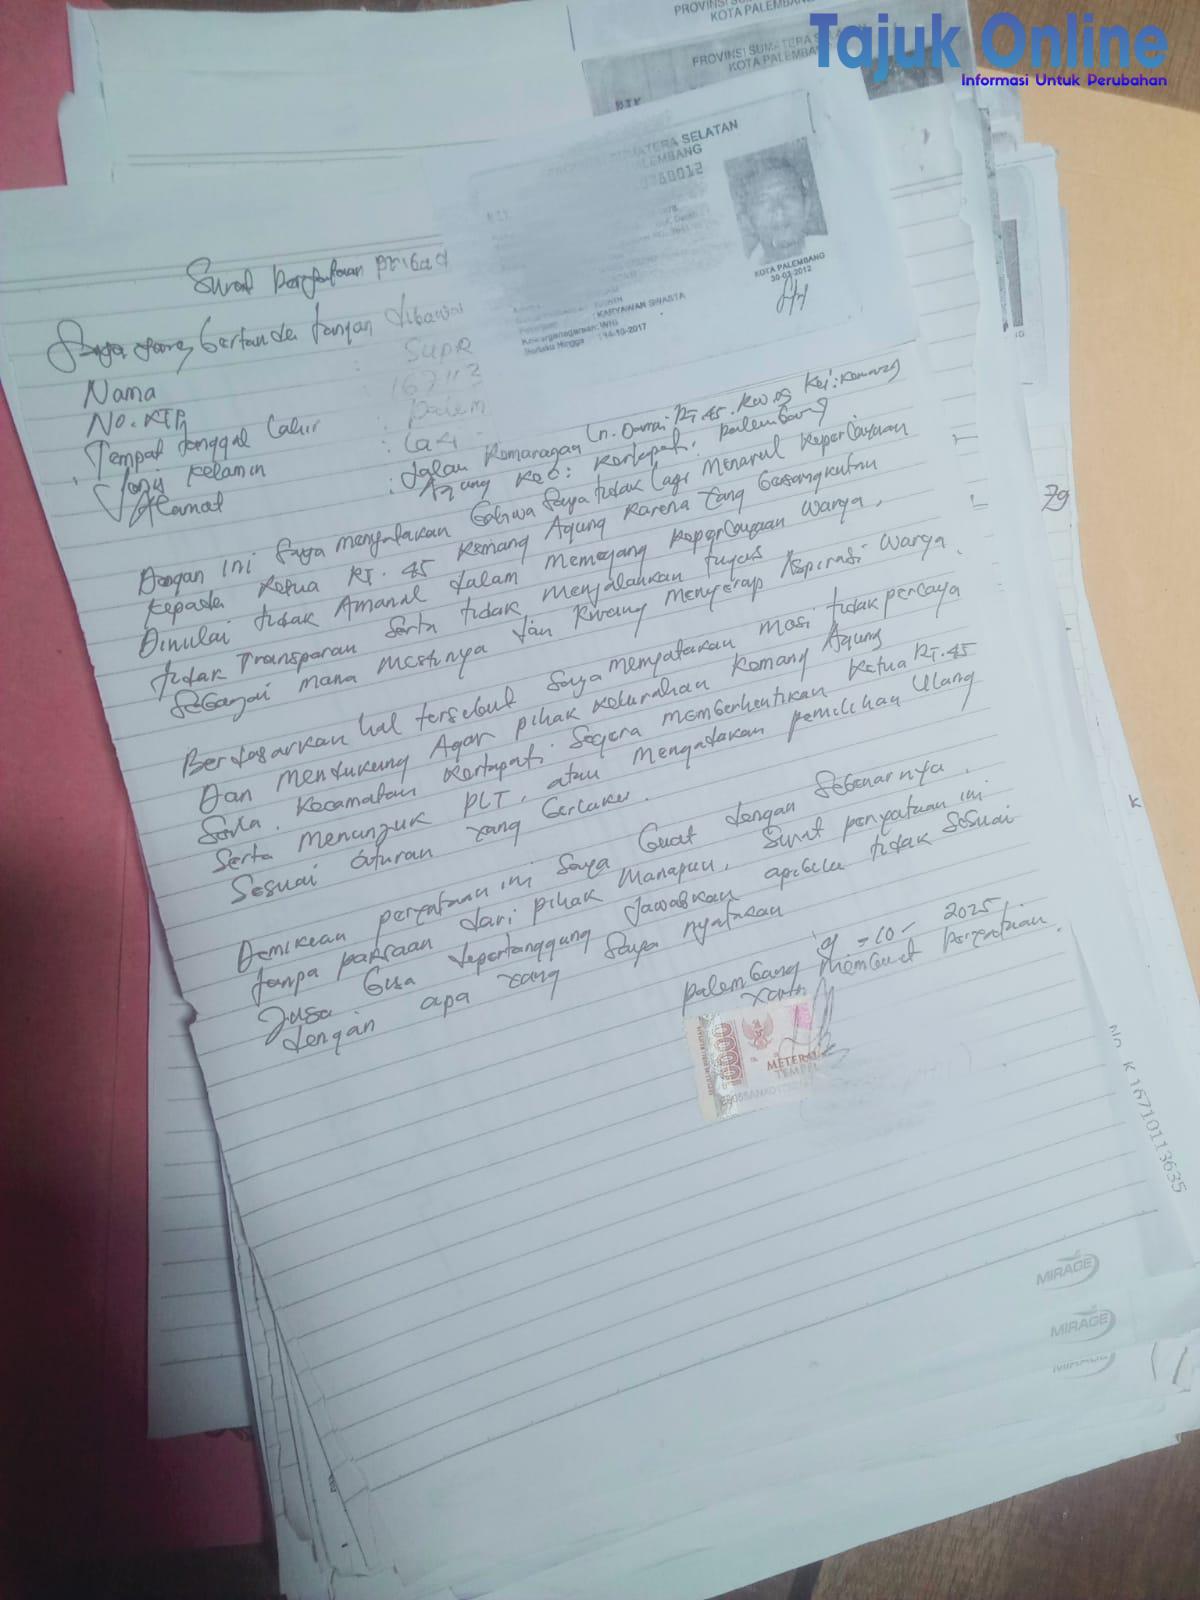 Tajuk Online
Informasi Untuk Perubahan
PROVINSI SUMATERA SELATAN
KOTA PALEMBANG
PROVINSI SUMATERA SELATAN
KOTA PALEMBANG
NIK
SUMATERA SELATAN
PALEMBANG
60012
NIK
KOTA PALEMBANG
30-03-2012
: KARYAWAN SWASTA
Kewarganegaraan: WNI
Berlaku Hingga : 14-10-2017
Surat pernyataan pribad
Saya yang bertanda tangan dibawa
Nama : Supr
No. KTP : 16711
Tempat tanggal Lahir : palem
Jenis Kelamin : Laki
Alamat : Jalan Kemarogan Ln. Damai RT.45. Rw.09 Kel: Kemang
Agung Kec: Kertapati. palembang
Dengan ini saya menyatakan bahwa saya tidak Lagi Menarul kepercayaan
kepada Ketua RT. 45 Kemang Agung karena yang bersangkutan
Dinulai tidak Amanal dalam memegang kepercayaan warga,
tidak Transparan serta tidak menjalankan tugas
sebagai mana mestinya dan kurang menyerap Aspirasi warga.
Berdasarkan hal tersebut saya menyatakan mosi tidak percaya
Dan mendukung Agar pihak kelurahan Kemang Agung
serta. Kecamatan Kertapati. segera memberhentikan Ketua RT.45
serta menunjuk PLT, atau mengadakan pemilihan Ulang
sesuai aturan yang berlaku.
Demikean pernyataan ini saya buat dengan sebenarnya.
tanpa paksaan dari pihak manapun, surat penyatuan ini
Jusa bisa dipertanggung jawabkan apibila tidak sesuai
dengan apa yang saya nyatakan
palembang 9 - 10 - 2025
yang membuat pernyataan.
10000
METERAI
TEMPEL
79
K
No. K 16710113635
MIRAGE
MIRAGE
MIRAGE